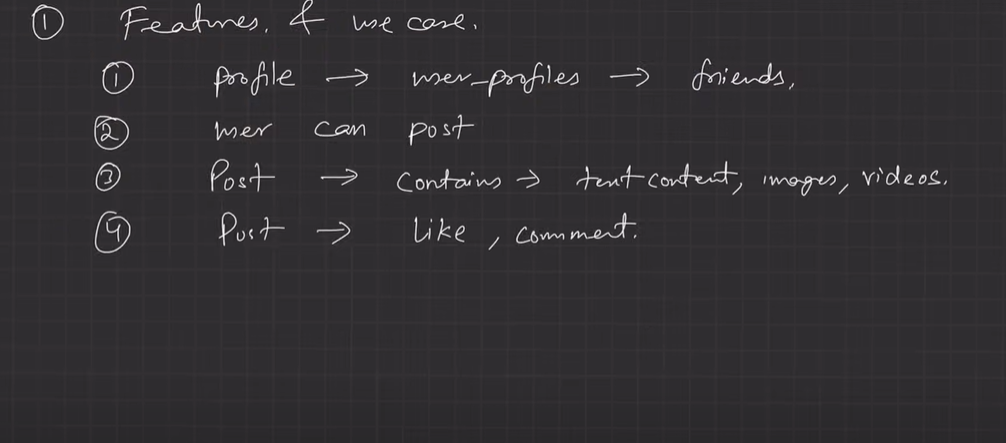 ① Features, & use case.
① profile → user_profiles → friends,
② user can post
③ Post → Contains → text content, images, videos.
④ Post → Like, comment.